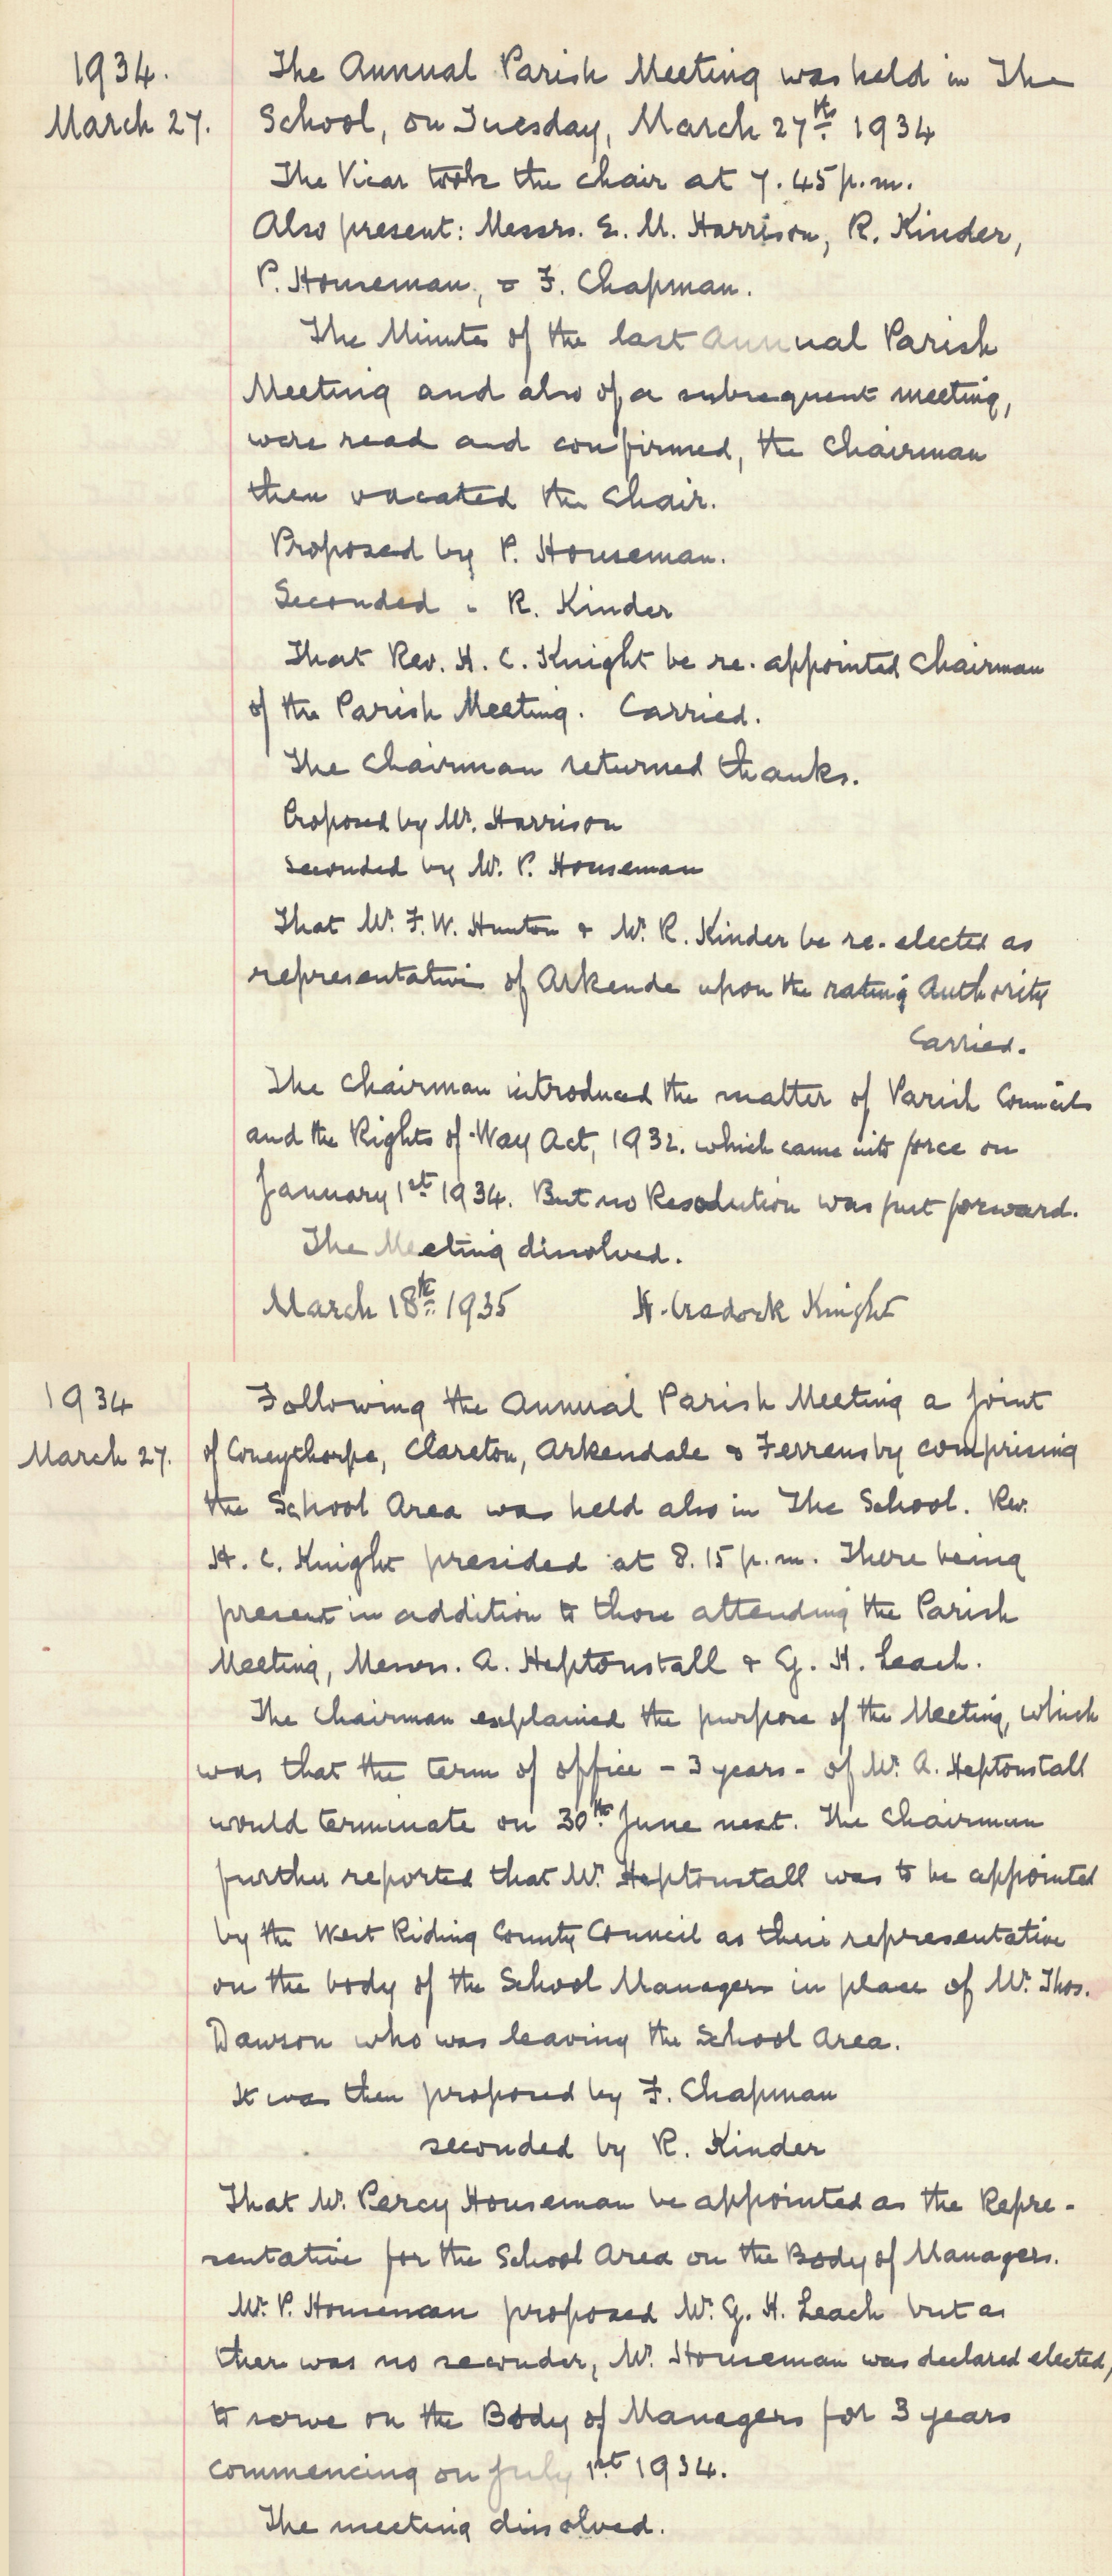 1934.
March 27.
The Annual Parish Meeting was held in The
School, on Tuesday, March 27th 1934
The Vicar took the chair at 7.45 p.m.
Also present: Messrs. E. M. Harrison, R. Kinder,
P. Houseman, & F. Chapman.
The Minutes of the last Annual Parish
Meeting and also of a subsequent meeting,
were read and confirmed, the Chairman
then vacated the Chair.
Proposed by P. Houseman.
Seconded " R. Kinder
That Rev. H. C. Knight be re-appointed Chairman
of the Parish Meeting. Carried.
The Chairman returned thanks.
Proposed by Mr. Harrison
Seconded by Mr. P. Houseman
That Mr. F. W. Hunton & Mr. R. Kinder be re-elected as
representatives of Arkende upon the rating Authority
Carried.
The Chairman introduced the matter of Parish Councils
and the Rights of Way Act, 1932. which came into force on
January 1st 1934. But no Resolution was put forward.
The Meeting dissolved.
March 18th 1935 H. Cradock Knight
1934
March 27.
Following the Annual Parish Meeting a Joint
of Coneythorpe, Clareton, Arkendale & Ferrensby comprising
the School Area was held also in The School. Rev.
H. C. Knight presided at 8.15 p.m. There being
present in addition to those attending the Parish
Meeting, Messrs. A. Heptonstall & G. H. Leach.
The Chairman explained the purpose of the Meeting, which
was that the term of office - 3 years - of Mr. A. Heptonstall
would terminate on 30th June next. The Chairman
further reported that Mr. Heptonstall was to be appointed
by the West Riding County Council as their representative
on the body of the School Managers in place of Mr. Thos.
Dawson who was leaving the School Area.
It was then proposed by F. Chapman
seconded by R. Kinder
That Mr. Percy Houseman be appointed as the Repre-
sentative for the School Area on the Body of Managers.
Mr. P. Houseman proposed Mr. G. H. Leach but as
ther was no seconder, Mr. Houseman was declared elected,
to serve on the Body of Managers for 3 years
commencing on July 1st 1934.
The meeting dissolved.